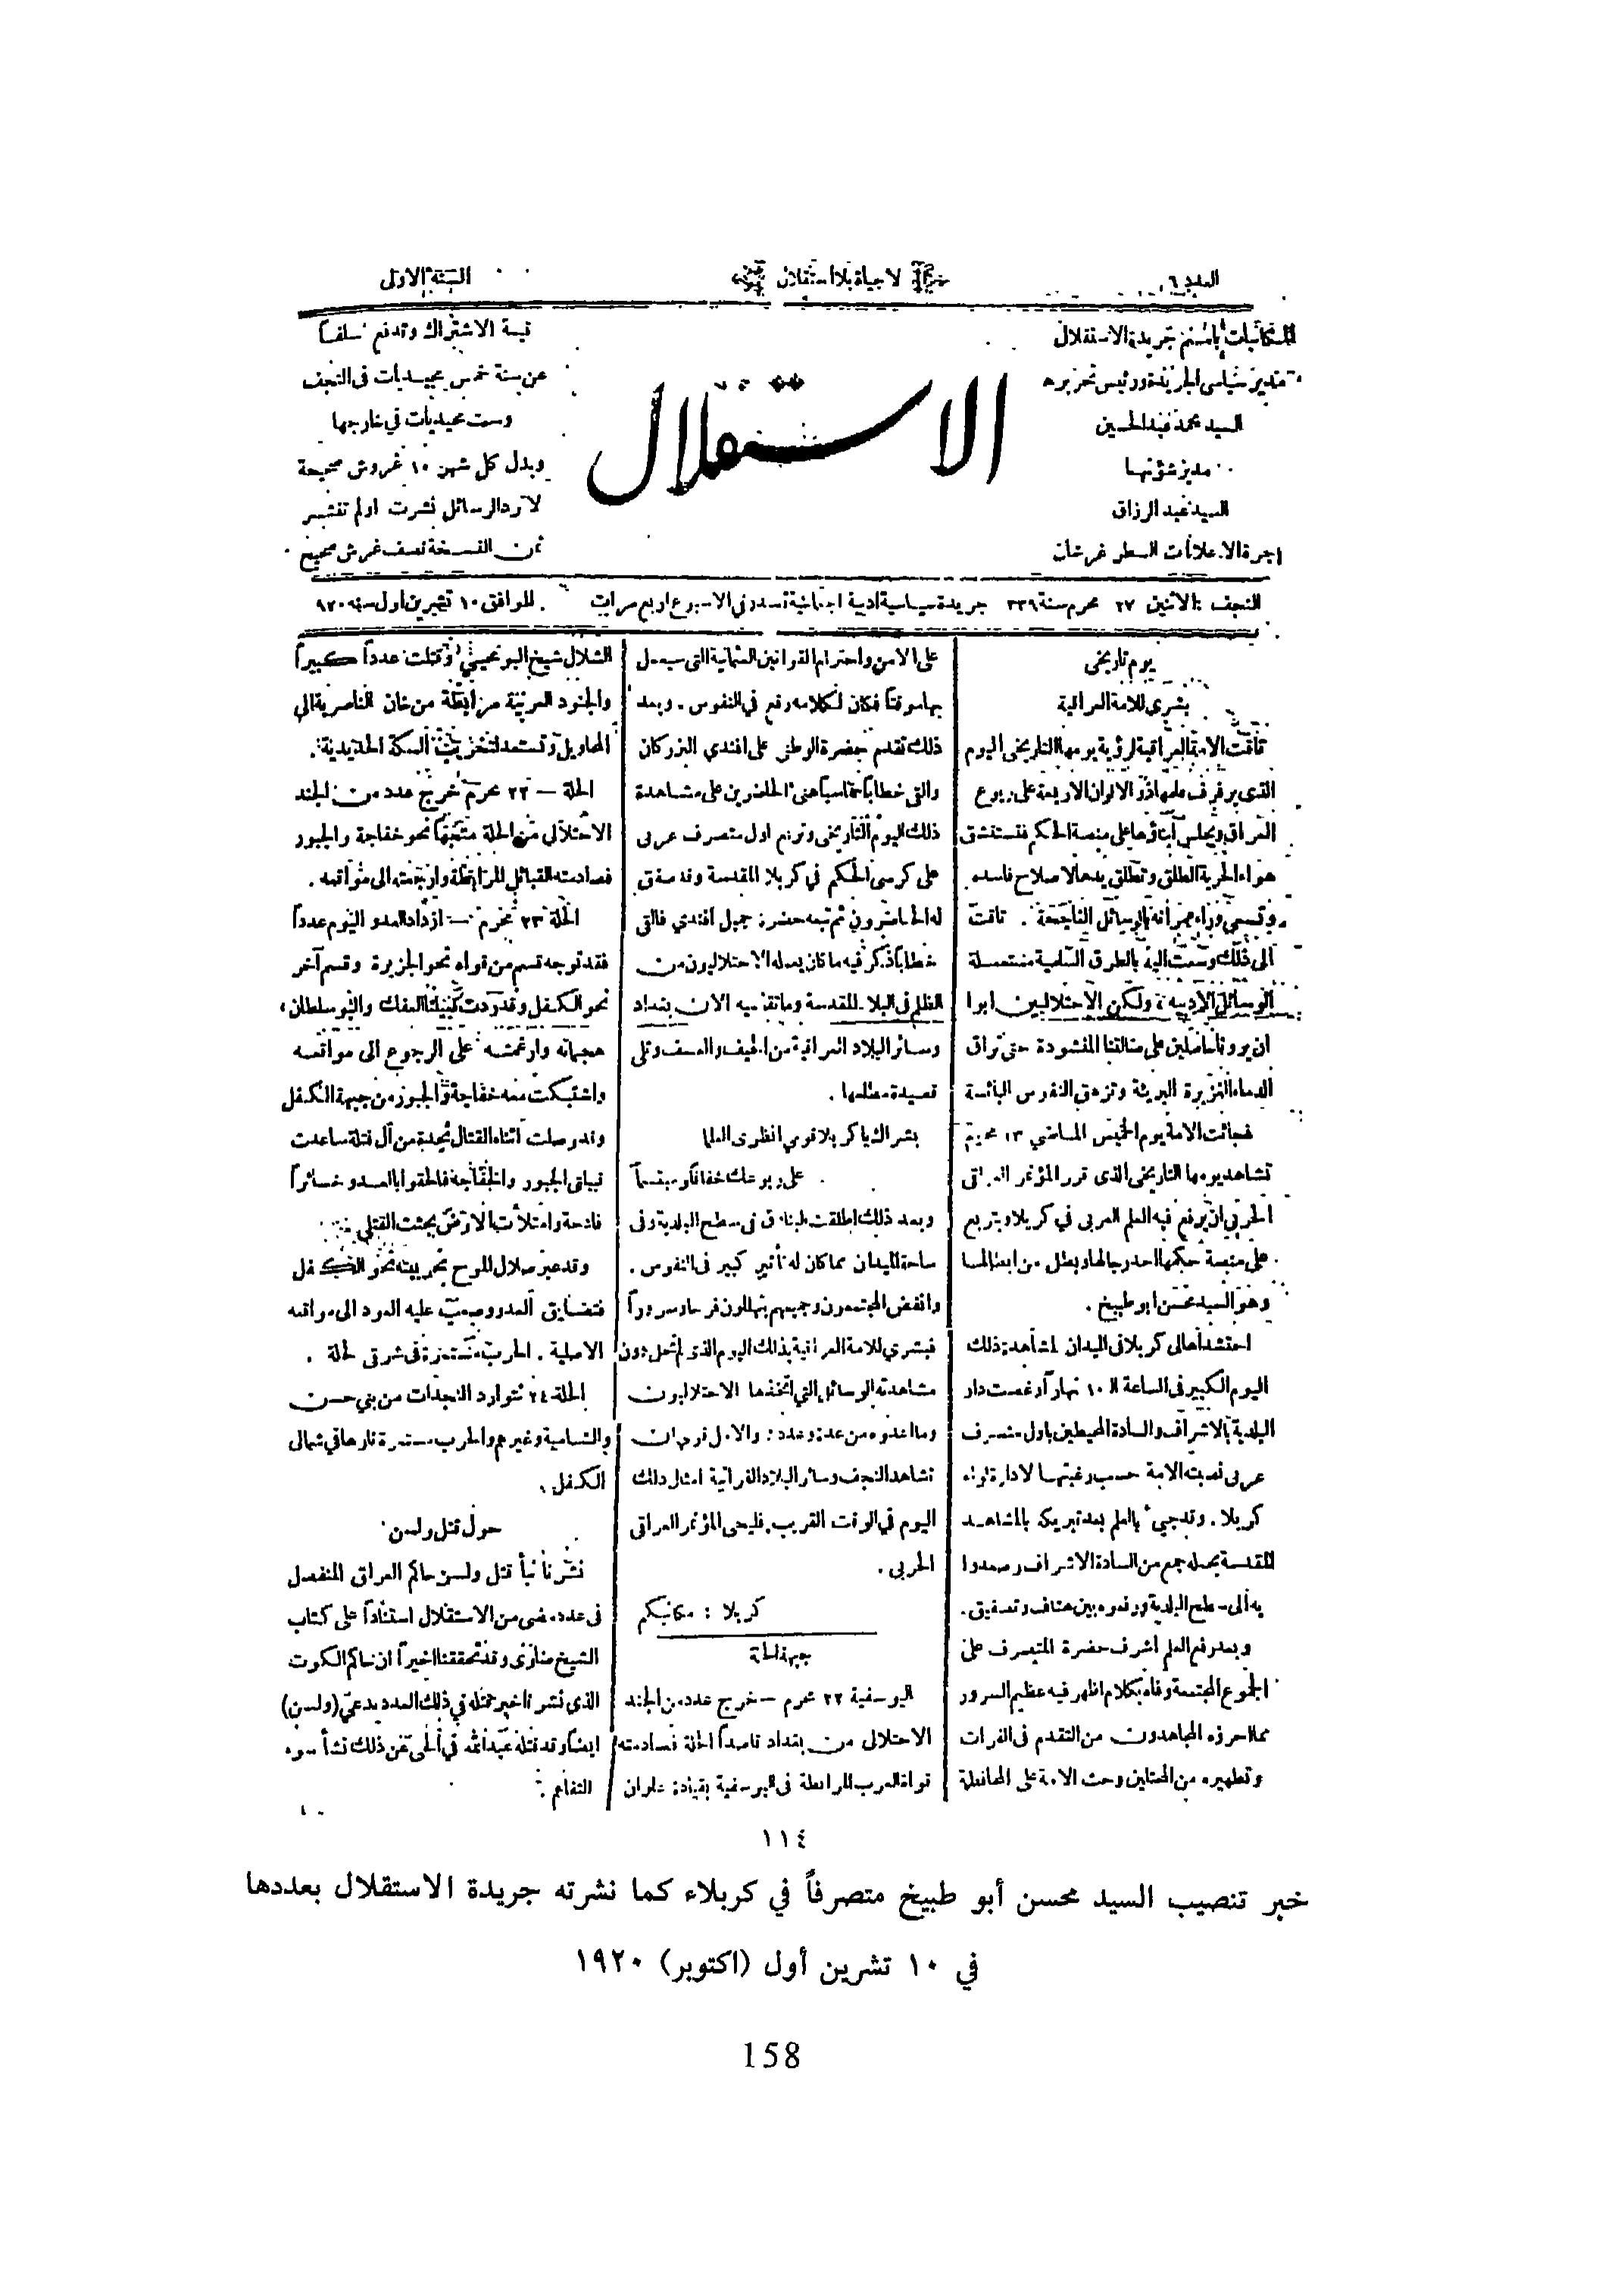 العدد ٦
لا حياة بلا استقلال
السنة الاولى
المكاتبات باسم جريدة الاستقلال
مدير سياسى الجريدة ورئيس تحريره
السيد محمد عبدالحسين
مدير شؤنها
السيد عبد الرزاق
اجرة الاعلانات السطر غرشان
الاستقلال
قيمة الاشتراك وتدفع سلفاً
عن سنة خمس مجيديات فى النجف
وست مجيديات في خارجها
وبدل كل شهر ١٠ غروش صحيحة
لا ترد الرسائل نشرت اولم تنشر
ثمن النسخة نصف غرش صحيح
النجف : الاثنين ٢٧ محرم سنة ٣٣٩ جريدة سياسية ادبية اجتماعية تصدر في الاسبوع اربع مرات الموافق ١٠ تشرين اول سنة ٩٢٠
يوم تاريخى
بشرى للامة العراقية
تاقت الامة العراقية لرؤية يومها التاريخى اليوم
الذى يرفرف علمها ذو الالوان الاربعة على ربوع
العراق ويجلس أبناؤها على منصة الحكم فتستنشق
هواء الحرية الطلق وتطلق يدها لاصلاح فاسده
وتسعى وراء عمرانه بالوسائل الناجعة . تاقت
الى ذلك وسعت اليه بالطرق السلمية مستعملة
الوسائل الادبية ولكن الاحتلاليين ابوا
ان يرونا حاصلين على ضالتنا المنشودة حتى تراق
الدماء الغزيرة البريئة وتزهق النفوس البائسة
فجائت الامة يوم الخميس الماضي ١٣ محرم
تشاهد يومها التاريخى الذى قرر المؤتمر العراقى
الحربي ان يرفع فيه العلم العربى في كربلا ويتربع
على منصة حكمها احد رجالها وبطل من ابطالها
وهو السيد محسن ابو طبيخ .
احتشد أهالى كربلا فى الميدان لمشاهدة ذلك
اليوم الكبير فى الساعة الـ ١٠ نهاراً وغصت دار
البلدية بالاشراف والسادة المحيطين باول متصرف
عربى نصبته الامة حسب رغبتها لادارة لواء
كربلا . وقد جيء بالعلم بعد تبريكه بالمشاهد
المقدسة يحمله جمع من السادة الاشراف وصعدوا
به الى سطح البلدية ورفعوه بين هتاف وتصفيق .
وبعد رفع العلم أشرف حضرة المتصرف على
الجموع المجتمعة وفاه بكلام اظهر فيه عظيم السرور
مما احرزه المجاهدون من التقدم فى الفرات
وتطهيره من المحتلين وحث الامة على المحافظة
على الامن واحترام القوانين العثمانية التى سيعمل
بها موقتاً فكان لكلامه وقع في النفوس . وبعد
ذلك تقدم حضرة الوطنى على افندي البزركان
والقى خطاباً حماسياً هنئ الحاضرين على مشاهدة
ذلك اليوم التاريخى وترنم اول متصرف عربى
على كرسى الحكم في كربلا المقدسة وقد صفق
له الحاضرون ثم تبعه حضرة جميل افندي فالقى
خطاباً ذكر فيه ما كان يعمله الاحتلاليون من
الظلم فى البلاد المقدسة وماتقاسيه الان بغداد
وسائر البلاد العراقية من الحيف والعسف وتلى
قصيدة مطلعها .
بشراك ياكربلا قومي انظرى العلما
على ربوعك خفاقاً ومبتسماً
وبعد ذلك اطلقت البنادق فى سطح البلدية وفى
ساحة الميدان مما كان له تأثير كبير فى النفوس .
وانفض المجتمعون وجميعهم يتهللون فرحاً وسروراً
فبشرى للامة العراقية بذلك اليوم الذى لم تحل دون
مشاهدته الوسائل التى اتخذها الاحتلاليون
وما اعدوه من عدة وعدد : والامل قوي ان
تشاهد النجف وسائر البلاد العراقية امثال ذلك
اليوم في الوقت القريب . فليحى المؤتمر العراقى
الحربى .
كربلا : مكاتبكم
جبهة الحلة
اليوسفية ٢٢ محرم — خرج عدد من الجند
الاحتلالى من بغداد قاصداً الحلة فصادمته
قواة العرب المرابطة فى اليوسفية بقيادة علوان
الشلال شيخ البو محيي وقتلت عدداً كبيراً
والجنود العربية مرابطة من خان الناصرية الى
المحاويل وتستعد لتخريب السكة الحديدية .
الحلة — ٢٢ محرم خرج عدد من الجند
الاحتلالي من الحلة متجهاً نحو خفاجة والجبور
فصادمته القبائل المرابطة وارجعته الى مواقعه .
الحلة ٢٣ محرم — ازداد العدو اليوم عدداً
فقد توجه قسم من قواه نحو الجزيرة وقسم آخر
نحو الكفل وقد ردت قبيلتا الفتلة والبو سلطان
هجماته وارغمته على الرجوع الى مواقعه
واشتبكت معه خفاجة والجبور من جبهة الكفل
وقد وصلت اثناء القتال نجدة من آل فتلة ساعدت
قبيلتى الجبور والخفاجة فالحقوا بالعدو خسائراً
فادحة وامتلأت الارض بجثث القتلى
وقد عبر صلال الموح بحربيته نحو الكفل
فتضايق العدو وصعب عليه العود الى مواقعه
الاصلية . الحرب مستمرة فى شرقى الحلة .
الحلة ٢٤ تتوارد النجدات من بني حسن
والشامية وغيرهم والحرب مستمرة نارها في شمالى
الكفل .
حول قتل ولسن
نشرنا نبأ قتل ولسن حاكم العراق المنفصل
فى عدد مضى من الاستقلال استناداً على كتاب
الشيخ ضارى وقد تحققنا اخيراً ان حاكم الكوت
الذى نشرنا خبر قتله في ذلك العدد يدعى (ولسن)
ايضاً وقد قتله عبدالله في الحي عن ذلك نشأ سوء
التفاهم .
١١٤
خبر تنصيب السيد محسن أبو طبيخ متصرفاً في كربلاء كما نشرته جريدة الاستقلال بعددها
في ١٠ تشرين أول (اكتوبر) ١٩٢٠
158